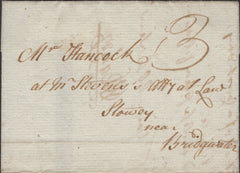 Mr Hancock 3
at Mr Stevens's Atty at Law
Stowey
near
Bridgwater